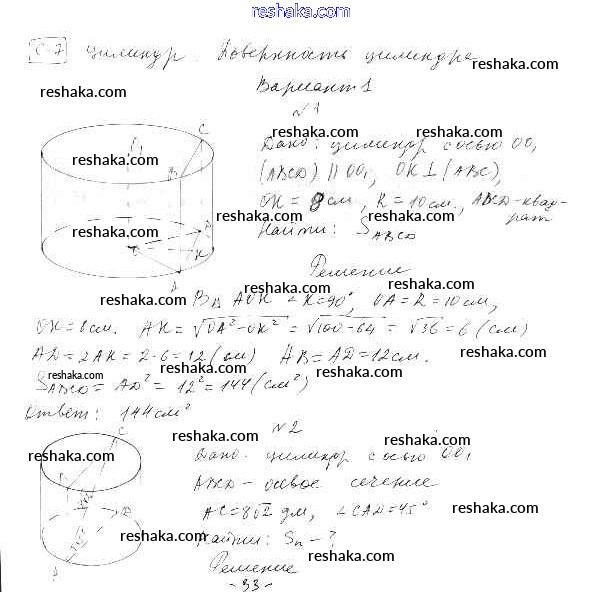 reshaka.com
С-7 Цилиндр. Поверхность цилиндра
reshaka.com
Вариант 1
reshaka.com
reshaka.com
№1
reshaka.com
Дано: цилиндр с осью OO₁
reshaka.com
(ABCD) || OO₁, OK ⊥ (ABC),
OK = 8 см, R = 10 см, ABCD - квад-
рат
reshaka.com
Найти: S ABCD
Решение
reshaka.com
В Δ AOK ∠K = 90°, OA = R = 10 см,
OK = 8 см. AK = √OA² - OK² = √100 - 64 = √36 = 6 (см)
reshaka.com
AD = 2AK = 2·6 = 12 (см) AB = AD = 12 см.
reshaka.com
S ABCD = AD² = 12² = 144 (см²)
reshaka.com
Ответ: 144 см²
reshaka.com
№2
reshaka.com
Дано: цилиндр с осью OO₁
reshaka.com
ABCD - осевое сечение
reshaka.com
AC = 8√2 дм, ∠CAD = 45°
reshaka.com
Найти: Sп - ?
reshaka.com
Решение
- 33 -